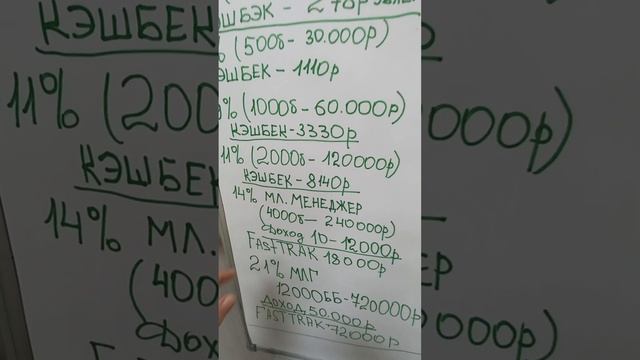 КЭШБЭК - 270р
% (500б - 30.000р)
КЭШБЕК - 1110р
% (1000б - 60.000р)
КЭШБЕК - 3330р
11% (2000б - 120000р)
КЭШБЕК - 8140р
14% МЛ. МЕНЕДЖЕР
(4000б — 240000р)
Доход 10 - 12000р
FASTTRAK 18000р
21% МЛГ
12000ББ - 720000р
ДОХОД 50.000р
FASTTRAK - 72000р